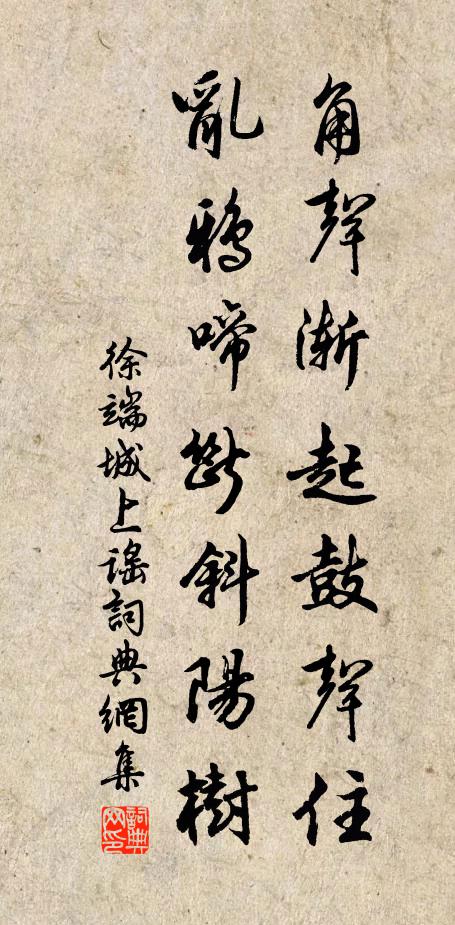 角聲漸起鼓聲住
亂鴉啼斷斜陽樹
徐端城上謠詞典網集
詞典網印